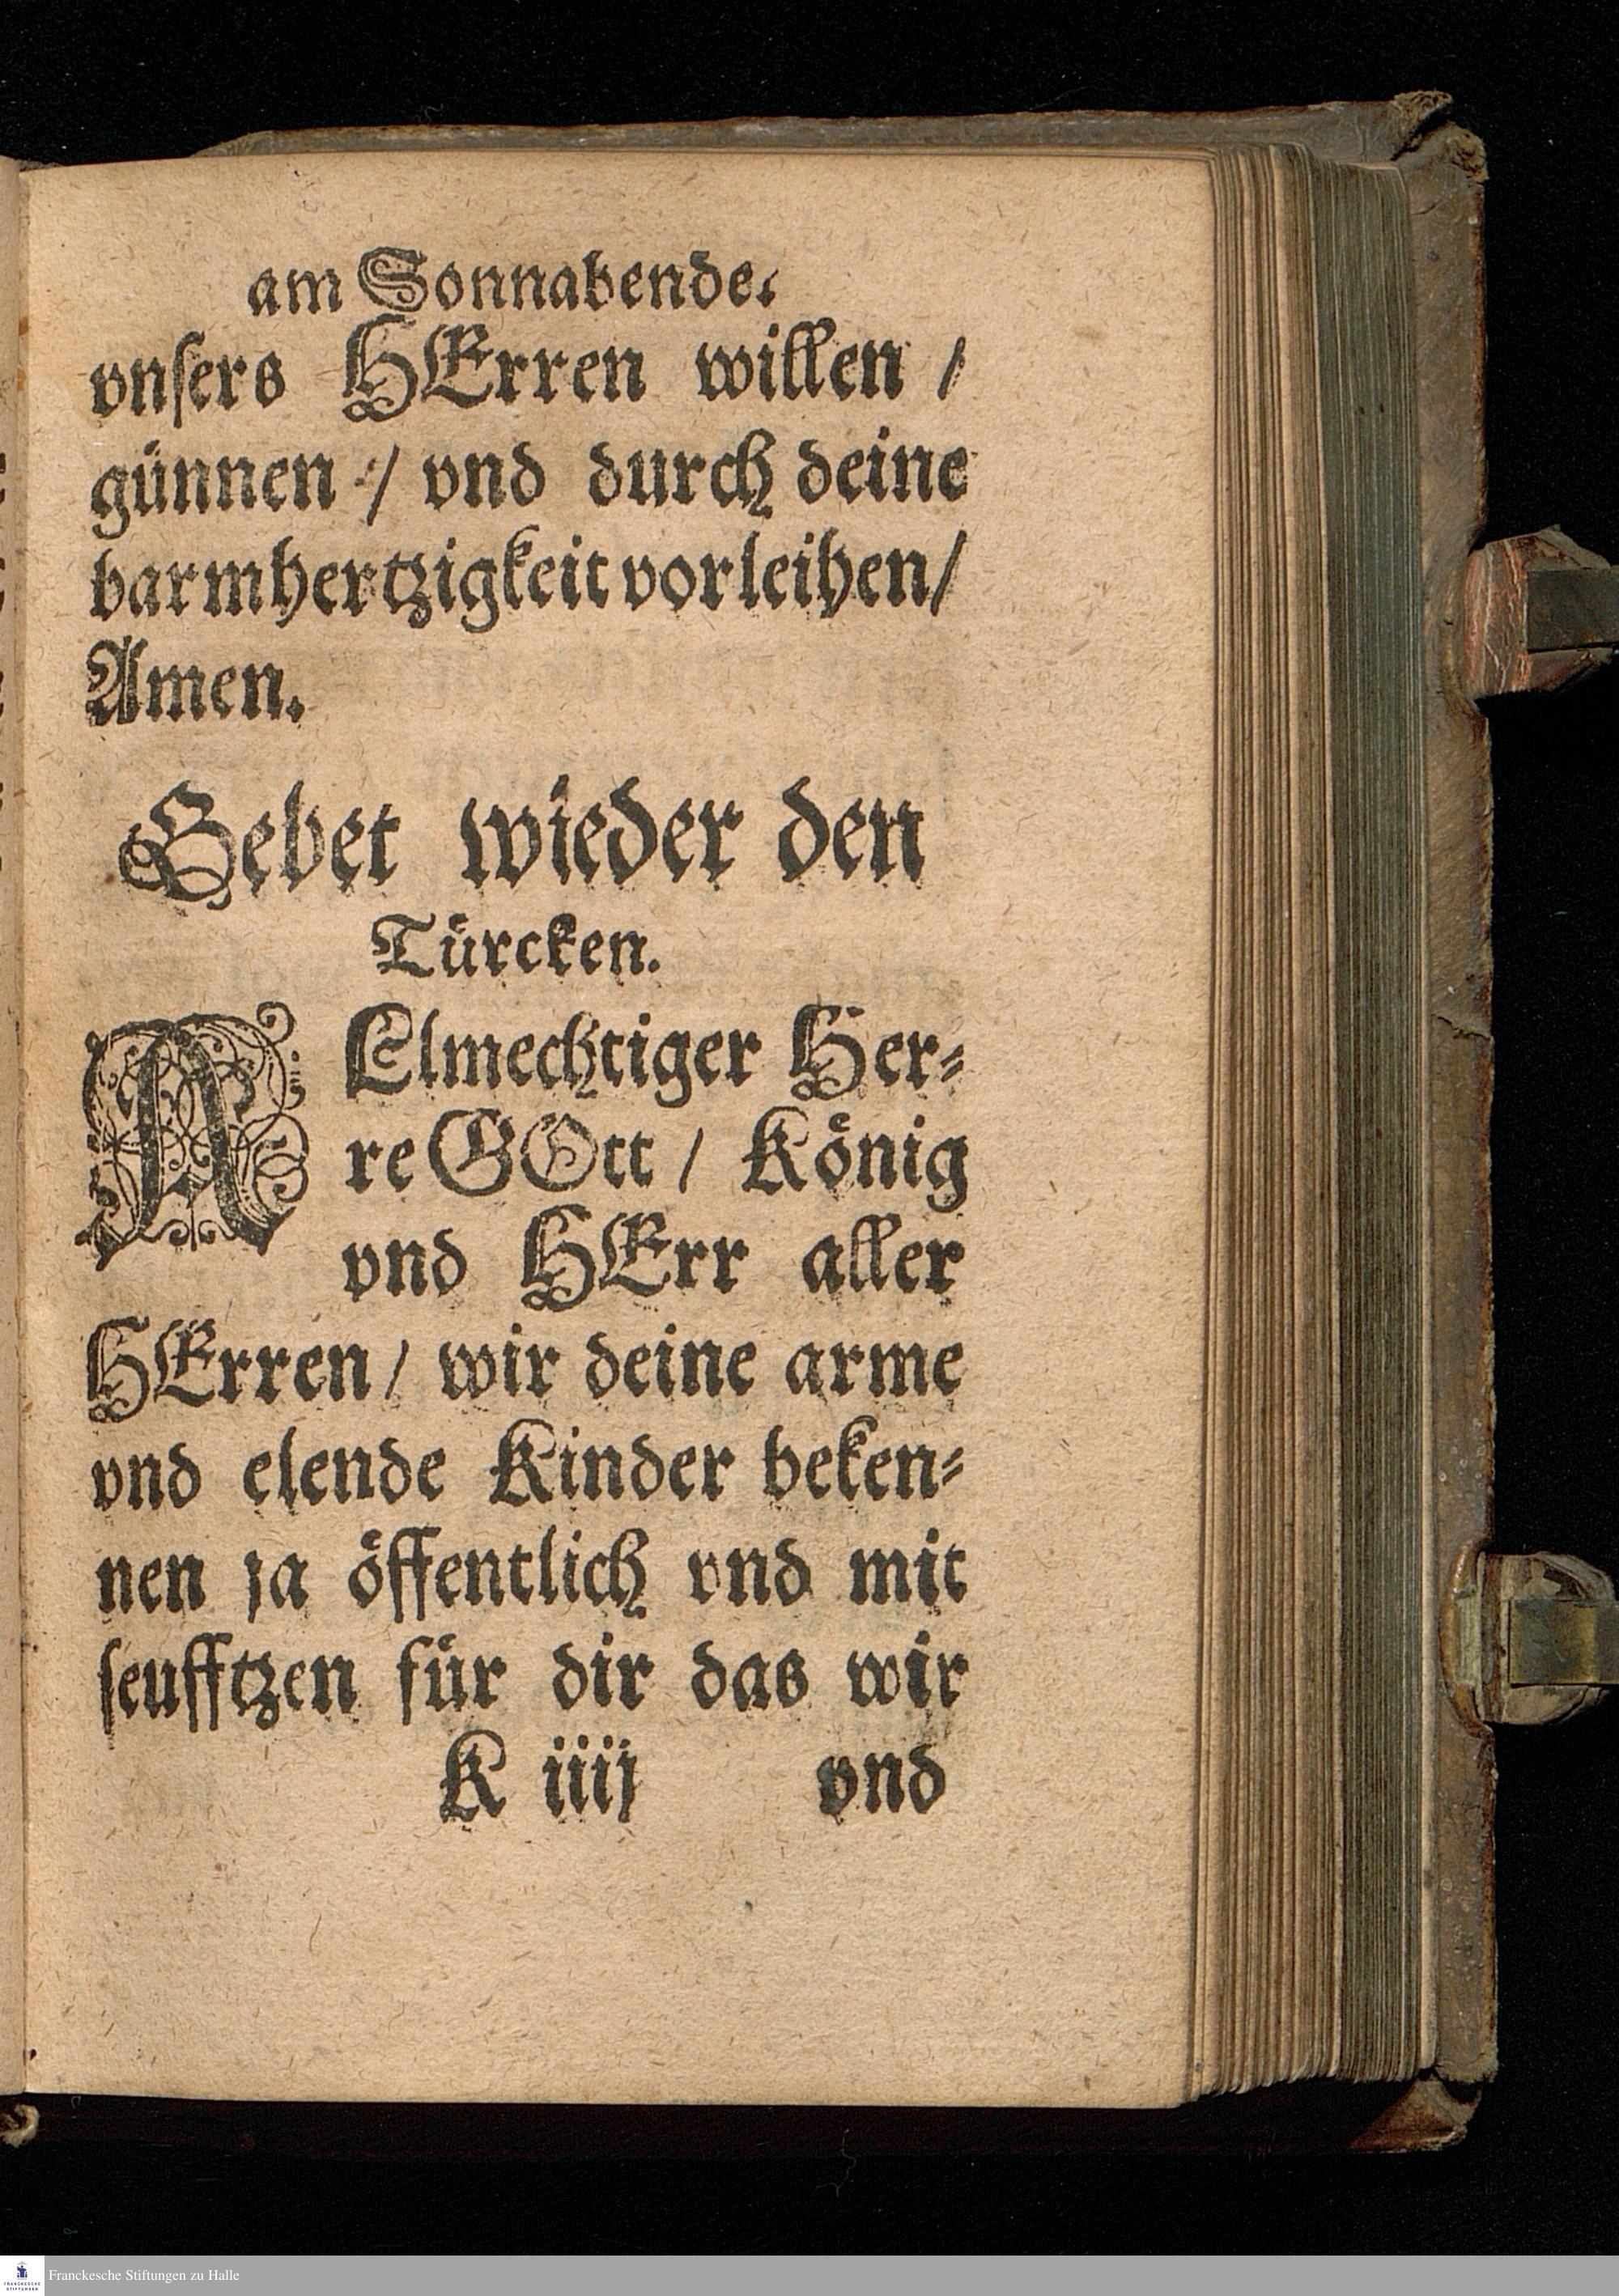 am Sonnabende.
vnsers HErren willen /
günnen / vnd durch deine
barmhertzigkeit vorleihen/
Amen.
Gebet wieder den
Türcken.
ALlmechtiger Her⸗
re GOtt / König
vnd HErr aller
HErren / wir deine arme
vnd elende Kinder beken⸗
nen ja öffentlich vnd mit
seufftzen für dir das wir
K iiij vnd
FRANCKESCHE STIFTUNGEN
Franckesche Stiftungen zu Halle